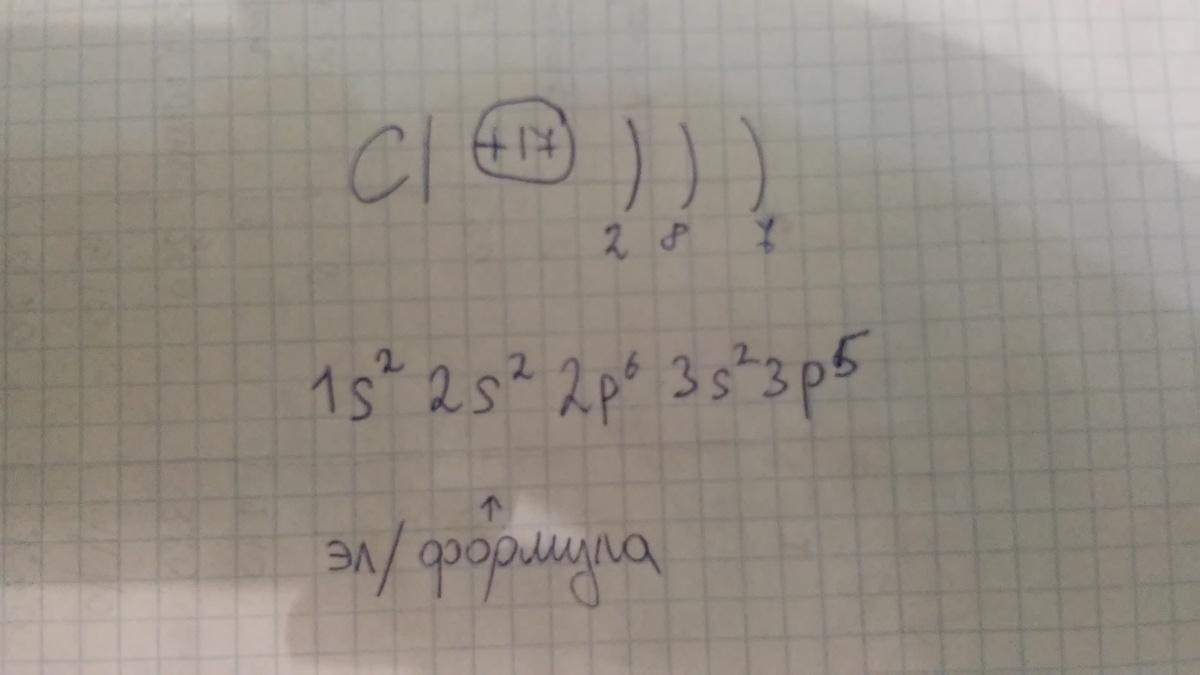 Cl +17 ) ) )
2 8 7
1s² 2s² 2p⁶ 3s² 3p⁵
↑
эл/формула